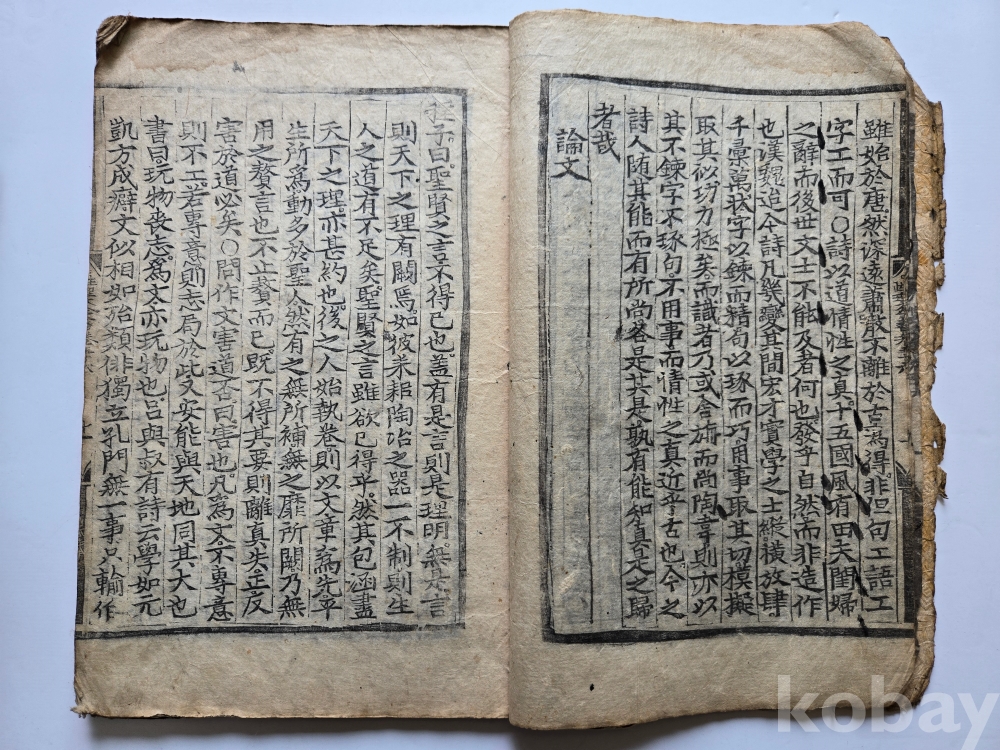 雖始於唐然深遠蕭散不離於古爲得非但句工語工
字工而可○詩以道情性之眞十五國風有田夫閨婦
之辭而後世文士不能及者何也發乎自然而非造作
也漢魏迨今詩凡幾變其間宏才實學之士縱橫放肆
千彙萬狀字以鍊而精句以琢而巧用事取其切模擬
取其似功力極矣而識者乃或舍旃而尚陶韋則亦以
其不鍊字不琢句不用事而情性之眞近乎古也今之
詩人随其能而有所尚各是其是孰有能知眞是之歸
者哉
論文
程子曰聖賢之言不得已也盖有是言則是理明無是言
則天下之理有闕焉如彼耒耜陶冶之器一不制則生
人之道有不足矣聖賢之言雖欲已得乎然其包涵盡
天下之理亦甚約也後之人始執卷則以文章爲先平
生所爲動多於聖人然有之無所補無之靡所闕乃無
用之贅言也不止贅而已旣不得其要則離眞失正反
害於道必矣○問作文害道否曰害也凡爲文不專意
則不工若專意則志局於此又安能與天地同其大也
書曰玩物丧志爲文亦玩物也呂與叔有詩云學如元
凱方成癖文似相如殆類俳獨立孔門無一事只輸作
kobay